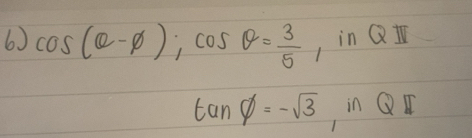 6) cos(θ-ø); cos θ = 3/5, in Q IV
tan ø = -√3, in Q II